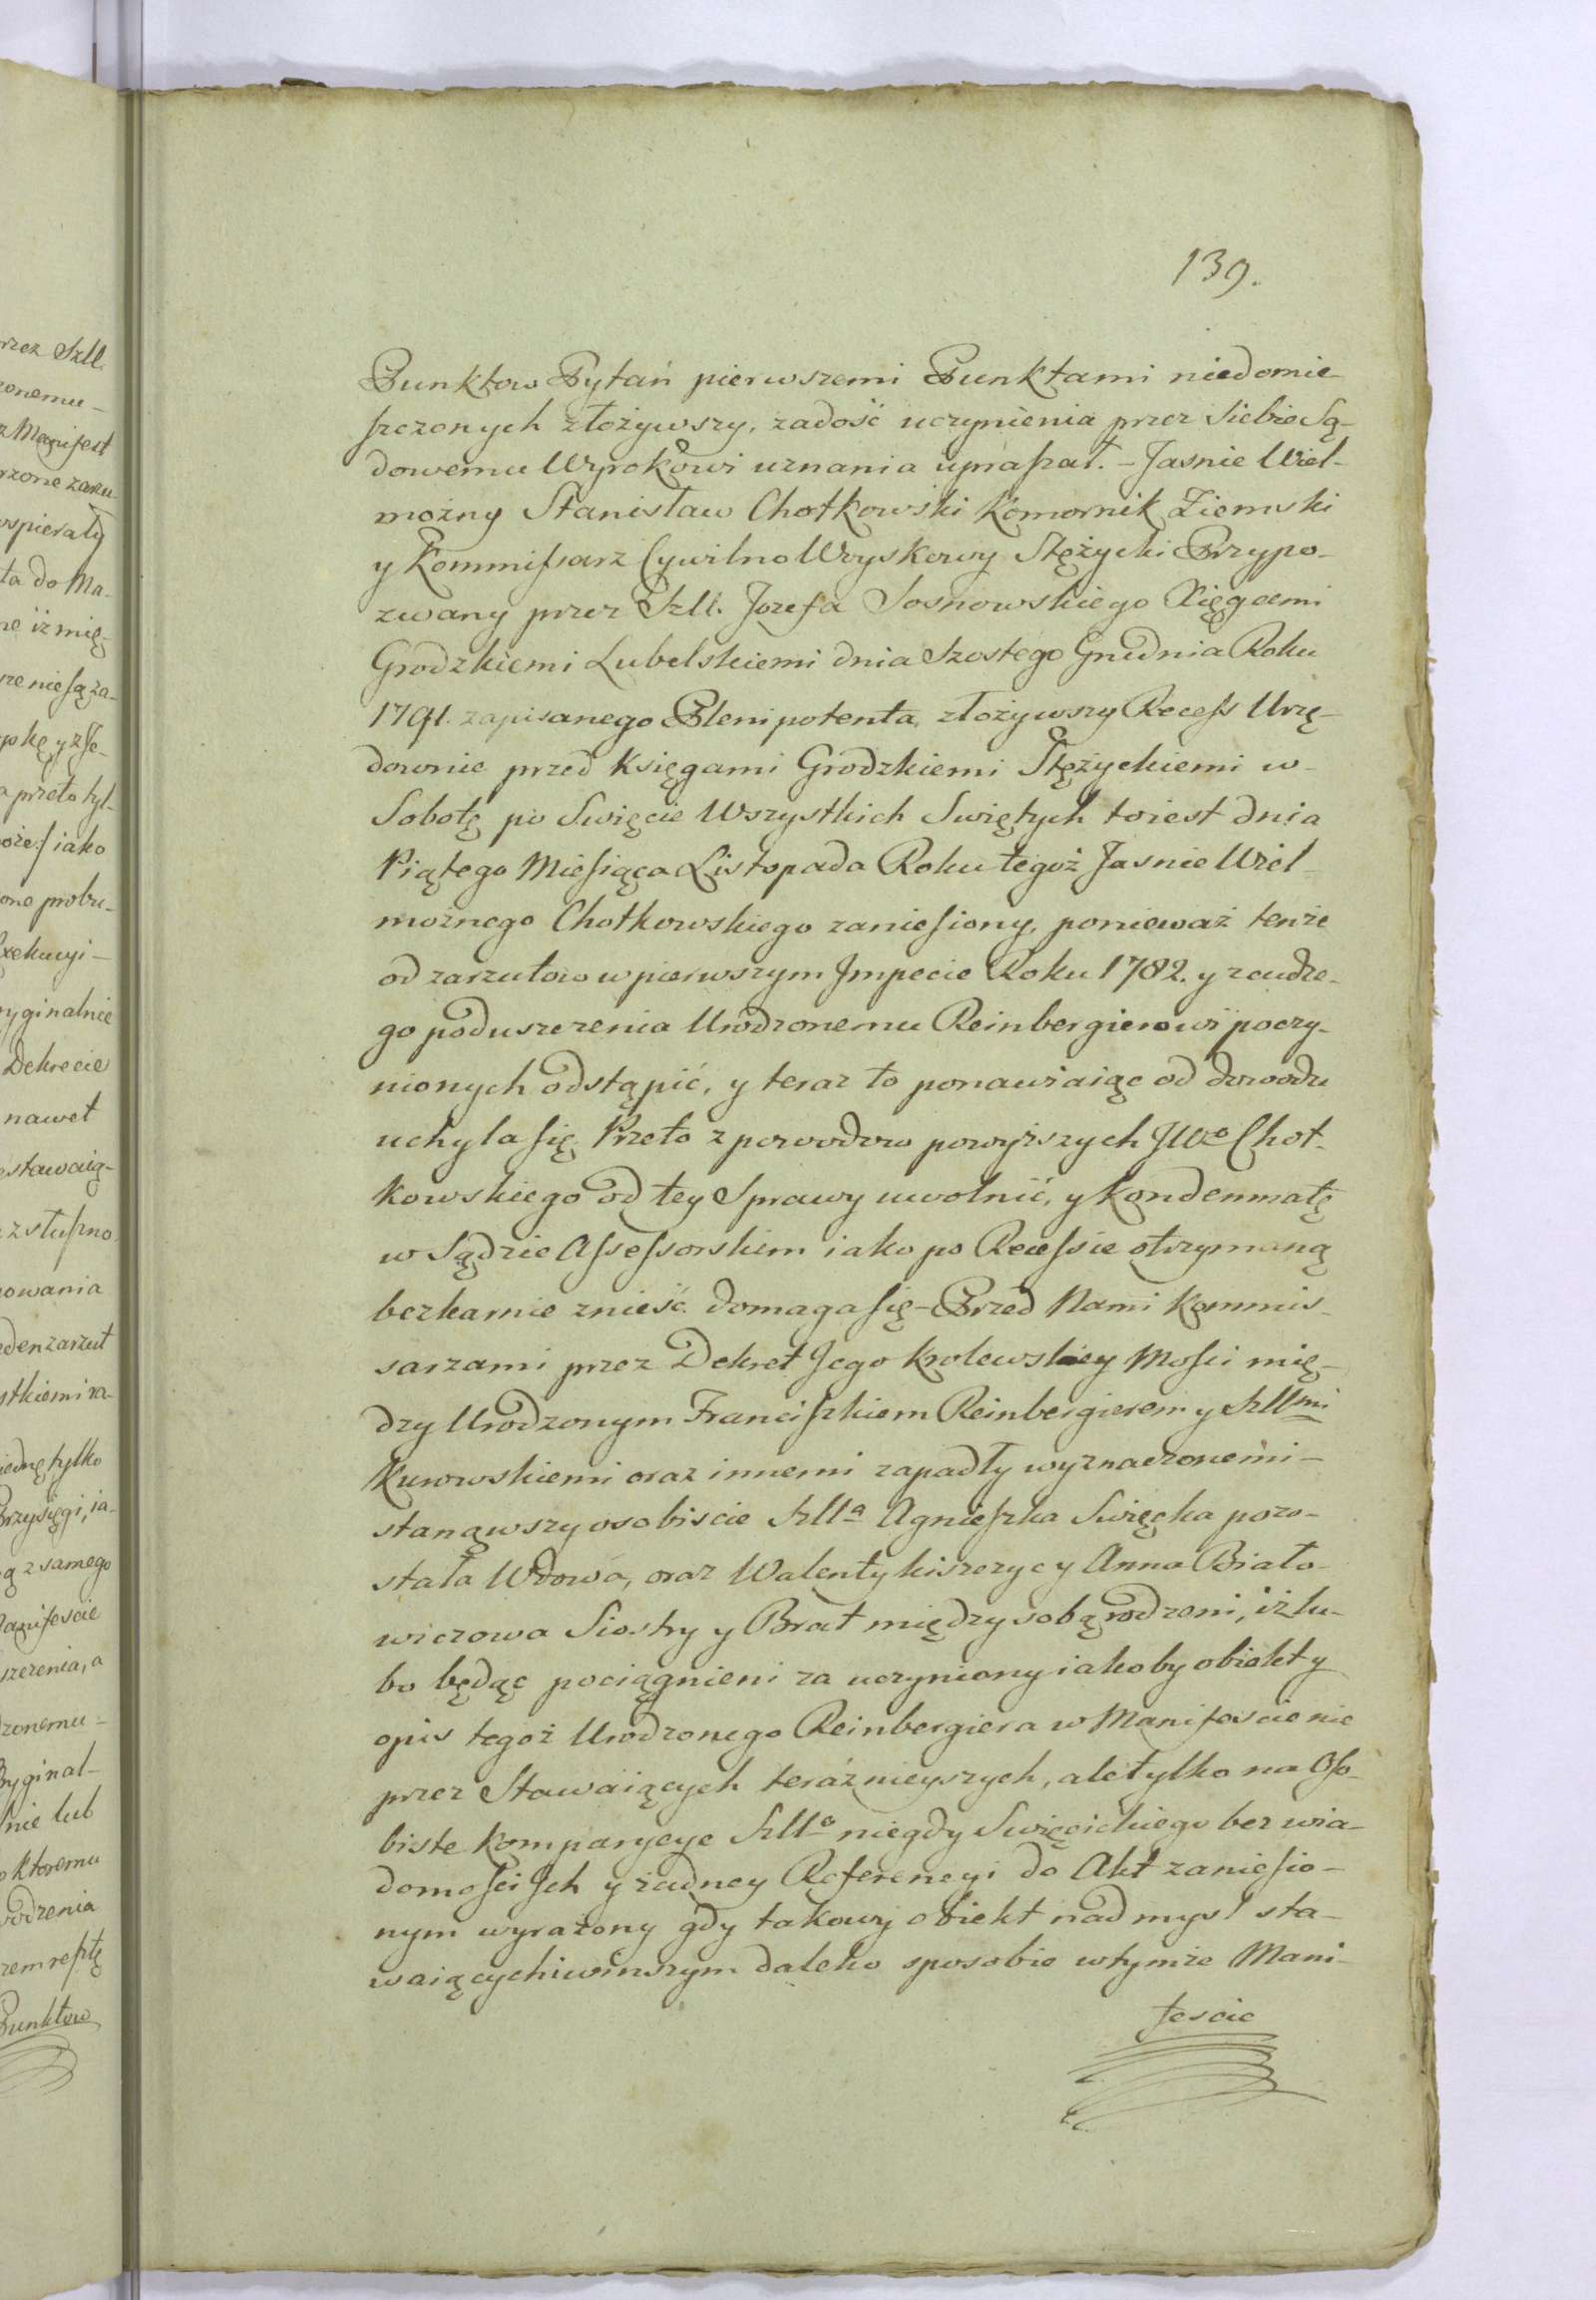 139.
Punktow Pytań pierwszemi Punktami niedomie-
szczonych złożywszy, zadość uczynienia przez Siebie Są-
dowemu Wyrokowi uznania upraszał. - Jasnie Wiel-
możny Stanisław Chotkowski Komornik Ziemski
y Kommissarz Cywilno Woyskowy Stężycki Przypo-
zwany przez Szll. Jozefa Sosnowskiego Xięgami
Grodzkiemi Lubelskiemi dnia Szostego Grudnia Roku
1791. zapisanego Plenipotenta, złożywszy Recess Urzę-
downie przed Księgami Grodzkiemi Stężyckiemi w-
Sobotę po Swięcie Wszystkich Swiętych toiest dnia
Piątego Miesiąca Listopada Roku tegoż Jasnie Wiel-
możnego Chotkowskiego zaniesiony, ponieważ tenże
od zarzutow w pierwszym Jmpecie Roku 1782. y z cudze-
go poduszczenia Urodzonemu Reinbergierowi poczy-
nionych odstąpić, y teraz to ponawiaiąc od dowodu
uchyla się. Przeto z powodow powyższych JWo Chot-
kowskiego od tey Sprawy uwolnić, y Kondemnatę
w Sądzie Assessorskim iako po Recessie otrzymaną
bezkarnie znieść. domaga się - Przed Nami Kommis-
sarzami przez Dekret Jego Krolewskiey Mosci mię-
dzy Urodzonym Franciszkiem Reinbergierem y Szllmi
Kurowskiemi oraz innemi zapadły wyznaczonemi -
stanąwszy osobiscie Szlla Agnieszka Swięcka pozo-
stała Wdowa, oraz Walenty Kiszczyc y Anna Biało-
wiczowa Siostry y Brat między sobą rodzeni, iż lu-
bo będąc pociągnieni za uczyniony iakoby obiekt y
opis tegoż Urodzonego Reinbergiera w Manifescie nie
przez Stawaiących teráznieyszych, ale tylko na Oso-
biste Komparycye Szllo niegdy Swięcickiego bez wia-
domosci Jch y żadney Referencyi do Akt zaniesio-
nym wyrażony gdy takowy obiekt nad mysl sta-
waiących i winszym daleko sposobie w tymże Mani-
fescie